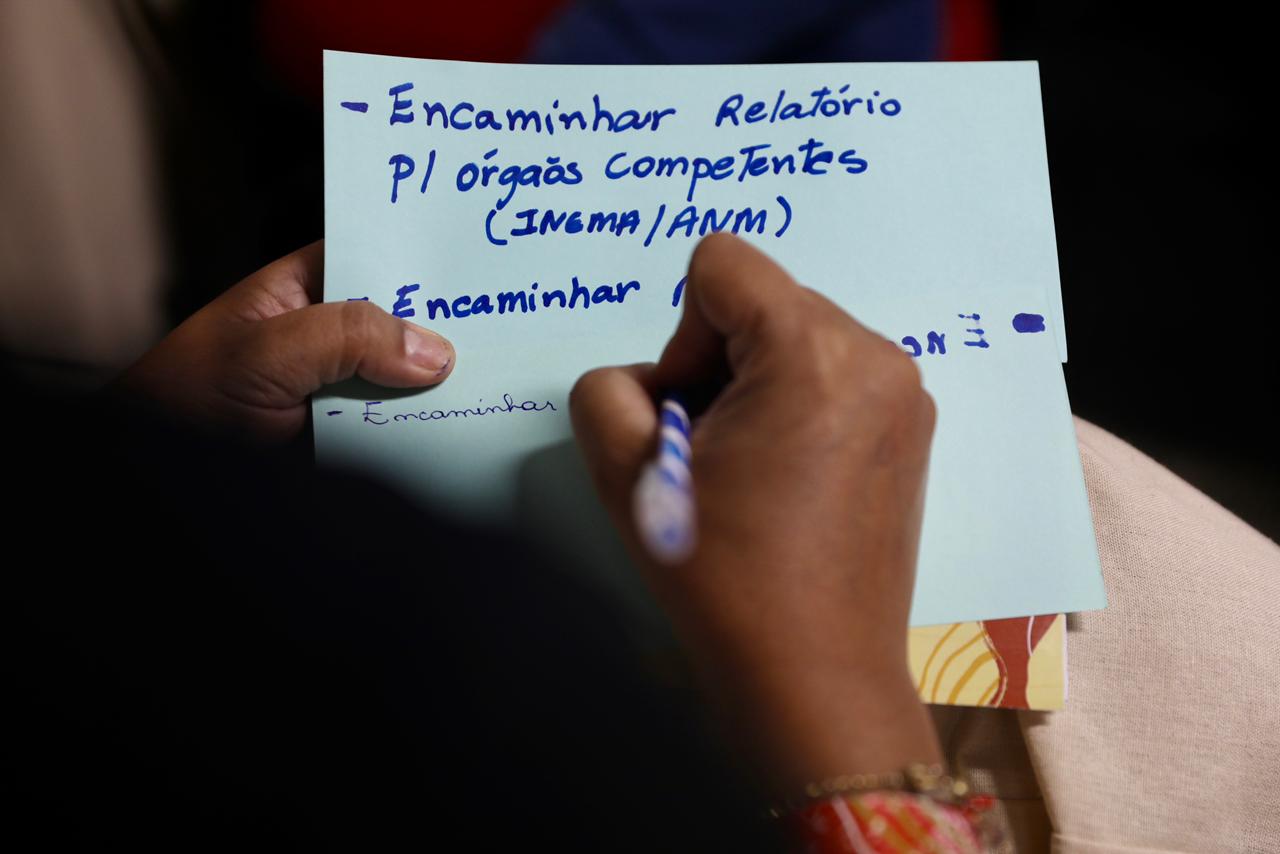 - Encaminhar Relatório
P/ órgaõs competentes
(INEMA/ANM)
- Encaminhar
- Encaminhar